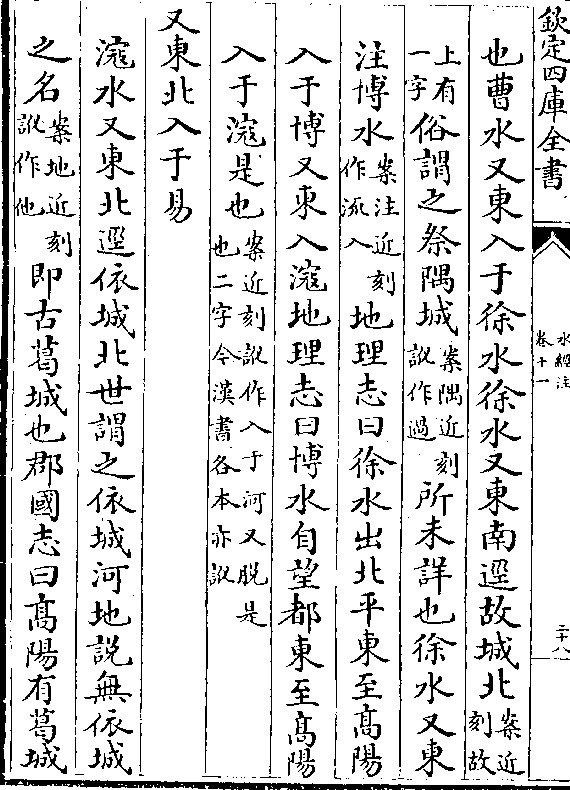 欽定四庫全書
水經注
卷十一
二十八
也曹水又東入于徐水徐水又東南逕故城北案近刻故
上有一字俗謂之祭隅城案隅近刻訛作過所未詳也徐水又東
注博水案注近刻作流入地理志曰徐水出北平東至高陽
入于博又東入滱地理志曰博水自望都東至高陽
入于滱是也案近刻訛作入于河又脫是也二字今漢書各本亦訛
又東北入于易
滱水又東北逕依城北世謂之依城河地說無依城
之名案地近刻訛作他即古葛城也郡國志曰高陽有葛城